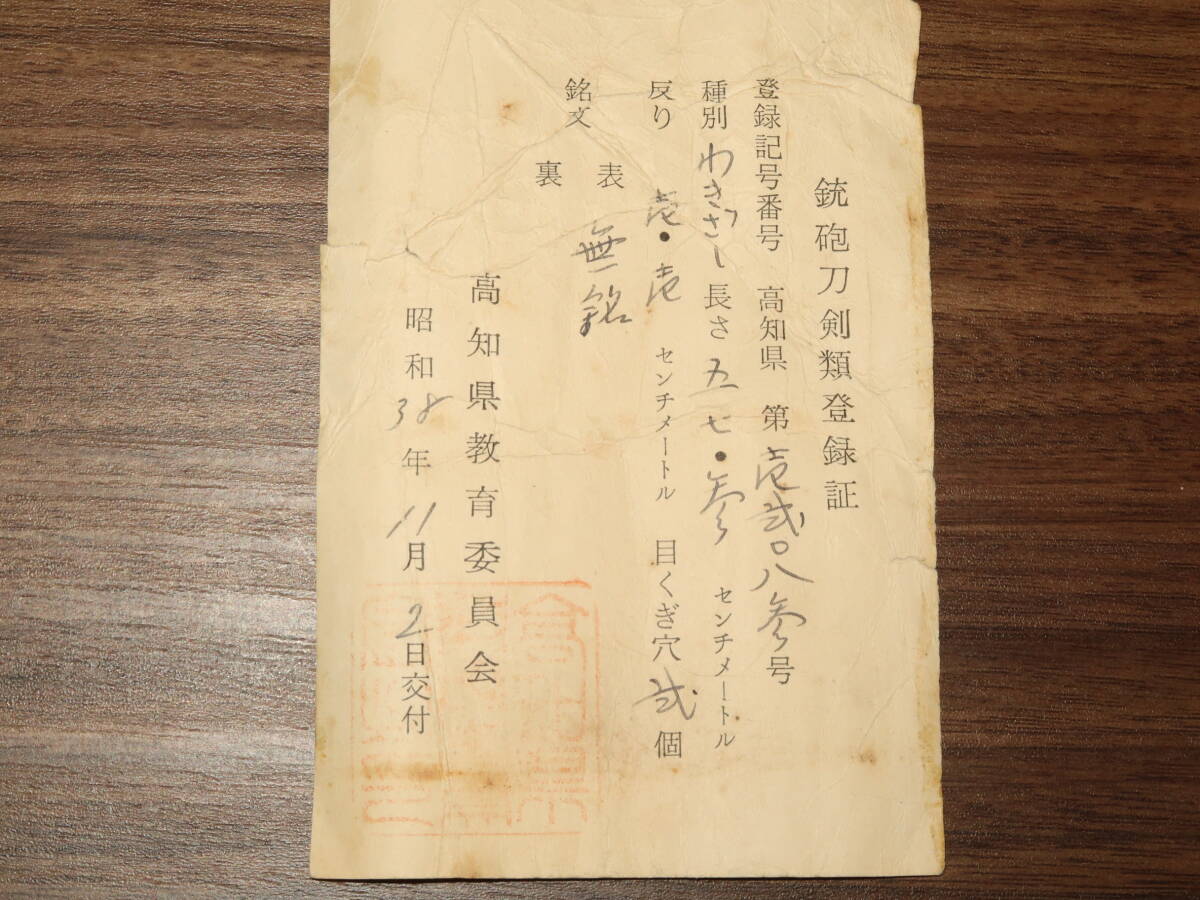 銃砲刀剣類登録証
登録記号番号 高知県 第壱弐〇八参号
種別 わきざし 長さ 五七・参 センチメートル
反り 壱・壱 センチメートル 目くぎ穴 弐 個
銘文
表 無銘
裏
高知県教育委員会
昭和38年11月2日交付